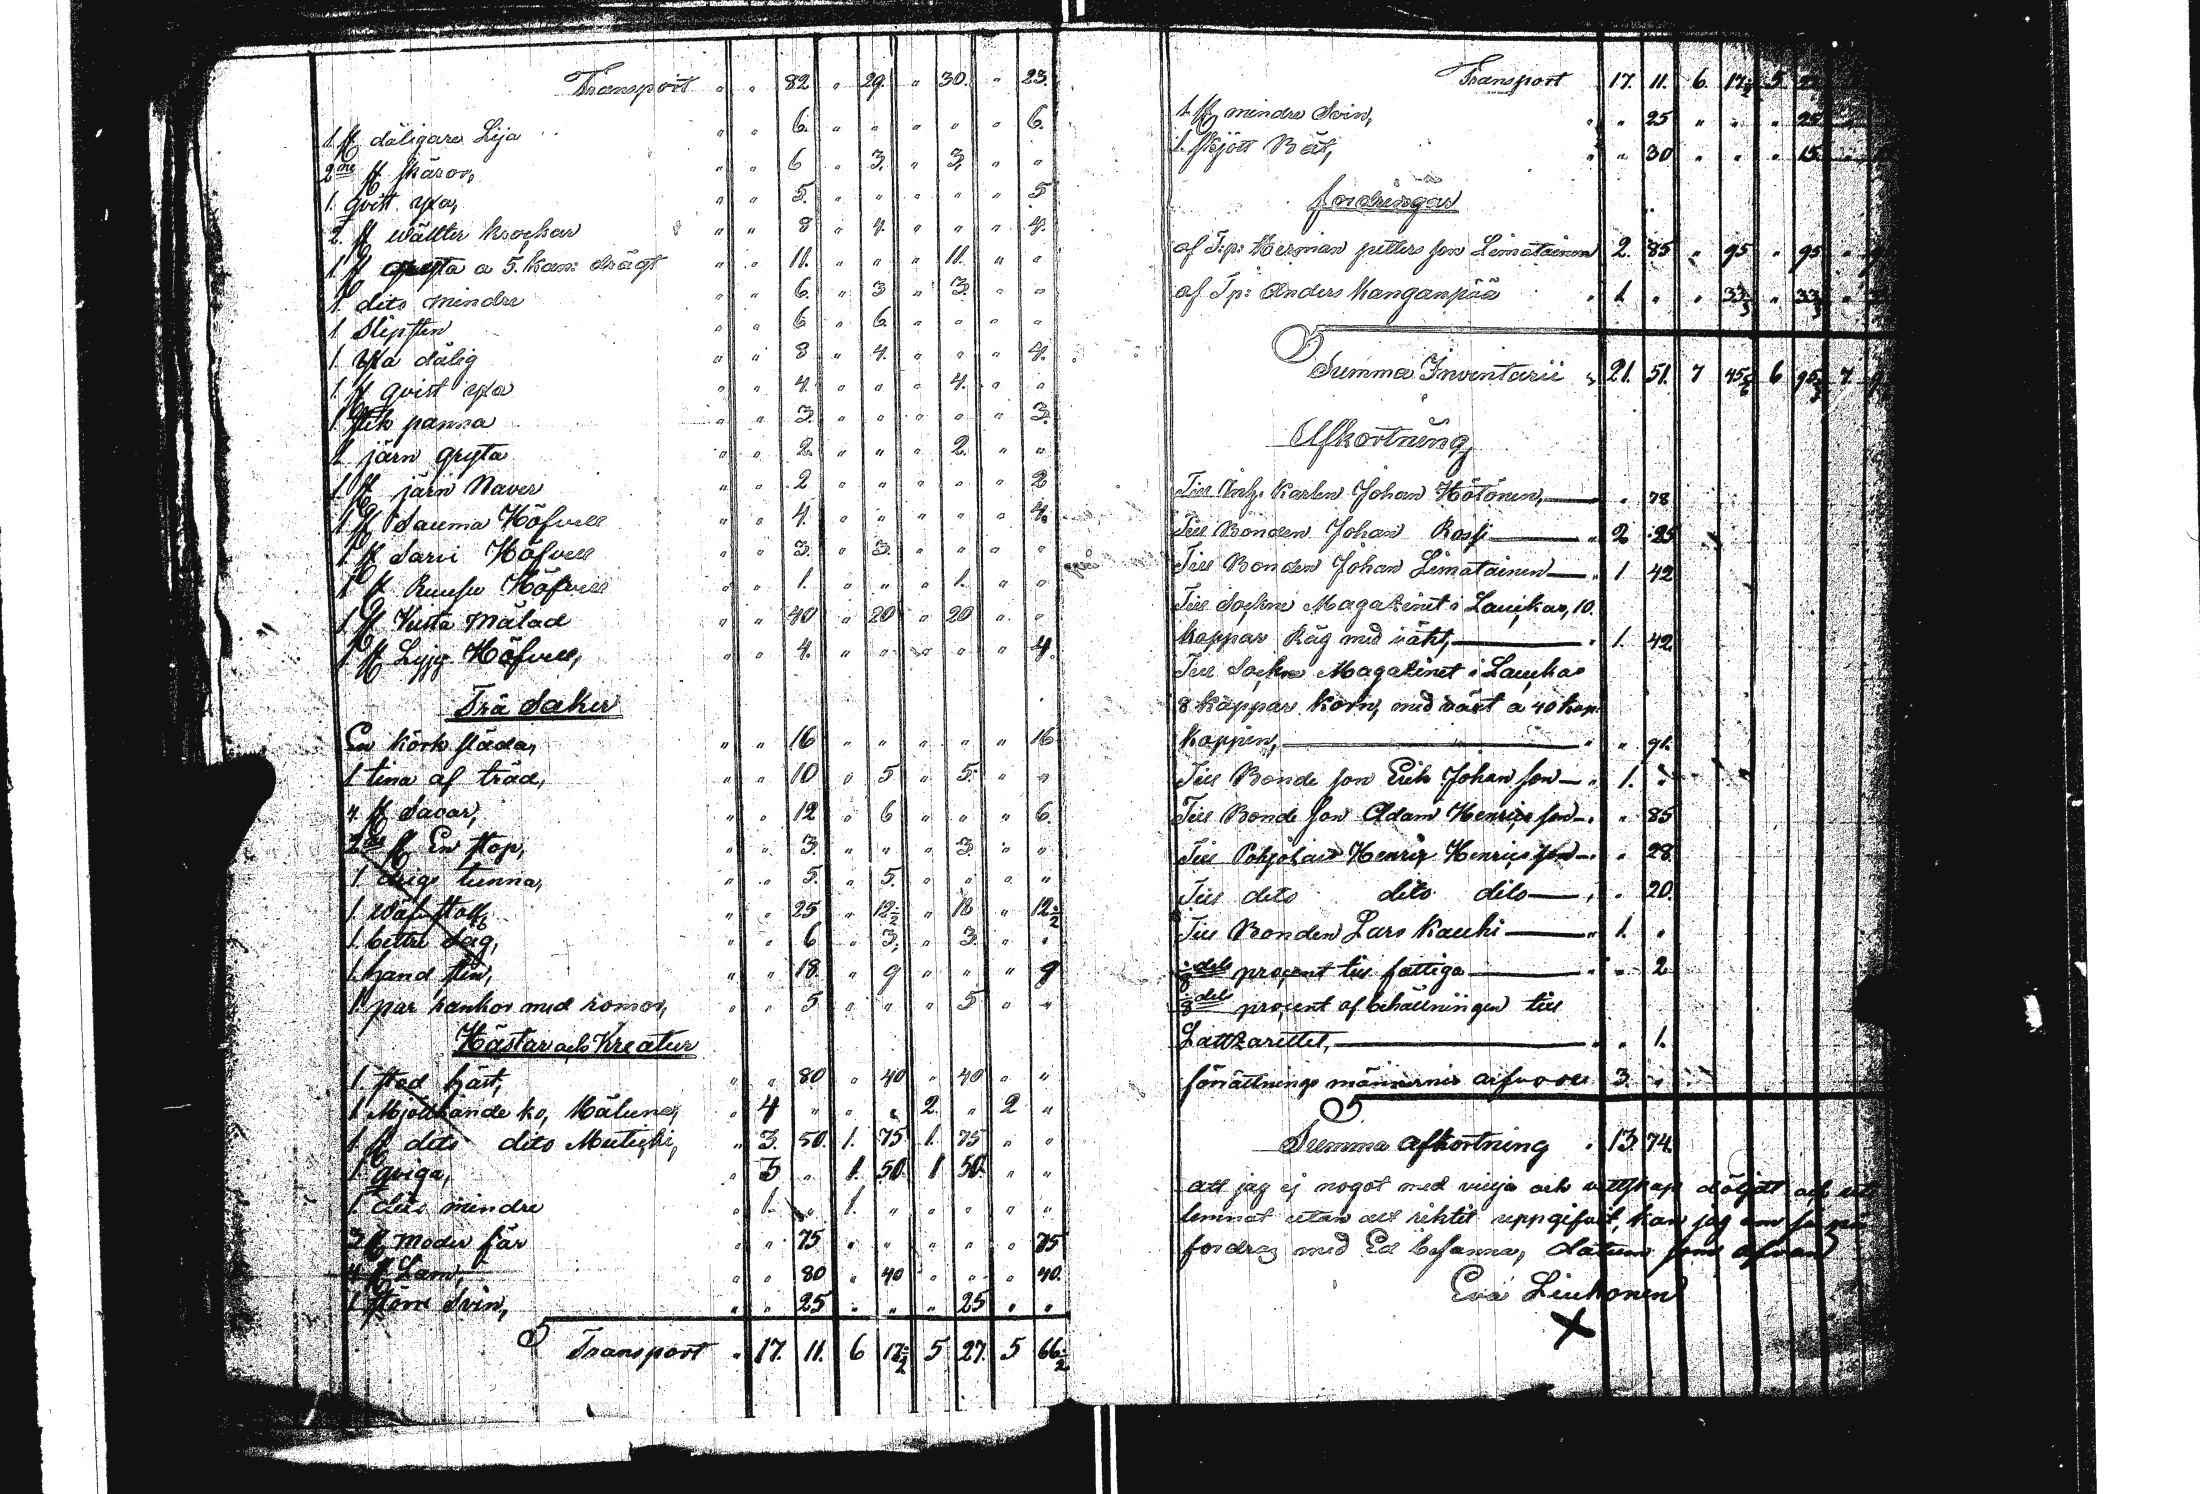 Transport " " 82 " 29. " 30. " 23.
1 st dåligare Lija " " 6. " " " " " 6.
2ne st skäror, " " 6 " 3. " 3. " "
1. qvist yxa, " " 5. " " " " " 5
2. st wällter krockar " " 8 " 4. " " " 4.
1 st gryta a 5. kan: drägt " " 11. " " " 11. " "
1. dito mindre " " 6. " 3 " 3. " "
1 Slipsten " " 6 " 6. " " " "
1. yxa dålig " " 8 " 4. " " " 4.
1. st qvist yxa " " 4. " " " 4. " "
1 stek panna " " 3. " " " " " 3.
1 järn gryta " " 2. " " " 2. " "
1. st järn Naver " " 2 " " " " " 2
1 st Sauma Höfvell " " 4. " " " " " 4.
1 st Sarvi Höfvell " " 3. " 3. " " " "
1 st Ruusu Höfvell " " 1. " " " 1. " "
1 st Kista Målad " " 40 " 20 " 20 " "
1 st Lyjy Höfvell, " " 4. " " " " " 4.
Trä Saker
En körk släda, " " 16 " " " " " 16
1 tina af träd, " " 10 " 5 " 5. " "
4 st Savar, " " 12 " 6 " " " 6.
2ne st En stop, " " 3. " " " 3. " "
1 deigs tunna, " " 5. " 5. " " " "
1 Wäf stoll, " " 25 " 12 1/2 " " 12 1/2
1 bettre Såg, " " 6 " 3. " 3. " "
1. hand sten, " " 18 " 9 " " " 9
1 par rankor med romor, " " 5 " " " 5 " "
Hästar och Kreatur
1 stod häst, " " 80 " 40 " 40 " "
1 Mjölkände ko, Mäluna, " 4 " " " 2. " 2 "
1 st dito dito Mutichi, " 3. 50. 1. 75 1. 75 " "
1 qviga, " 3 " 1. 50. 1 50. " "
1 dito mindre " 1. " 1. " " " " "
3 st Moder får " " 75 " " " " " 75
4 st Lam, " " 80 " 40 " " " 40.
1 störe Svin, " " 25 " " " 25 " "
Transport " 17. 11. 6 17 1/2 5 27. 5 66 1/2
Transport 17. 11. 6. 17 1/2 5.
1 st mindre Svin, " " 25 " " " 25
1. skjött Båt, " " 30 " " " 15
fordringar
af T:p: Herman petters son Limatainen 2. 85 " 95 " 95
af T:p: Anders Kanganpää " 1 " " 33 1/3 " 33 1/3
Summa Inventarii " 21. 51. 7 45 6 95 7
Afkortning
Till Inh: Karlen Johan Hötönen, " 78
Till Bonden Johan Rossi " 2 25
Till Bonden Johan Limatainen " 1 42
Till Sockne Magatzinet i Laukas, 10.
kappar Råg med växt, " 1. 42
Till Sockne Magatzinet i Laukas
8 kappar korn, med växt a 40 kop
kappen, " " 91.
Till Bonde son Erik Johan son " 1. "
Till Bonde son Adam Henrics son " " 85
Till Pohjolais Henric Henrics son " " 28
Till dito dito dito " " 20.
Till Bonden Lars Kauhi " 1. "
1/8 dels procent till fattiga " " 2
1/8 del procent af behållningen till
Lattzarettet, " " 1.
förrättnings männernes arfvode 3. "
Summa Afkortning " 13 74.
att jag ej nogot med vilja och vettskap döljdt och ute
lemnat utan allt riktit uppgifvit, kan jag om så på
fordras med Ed besanna, datum som ofvan
Eva Liukonen
X